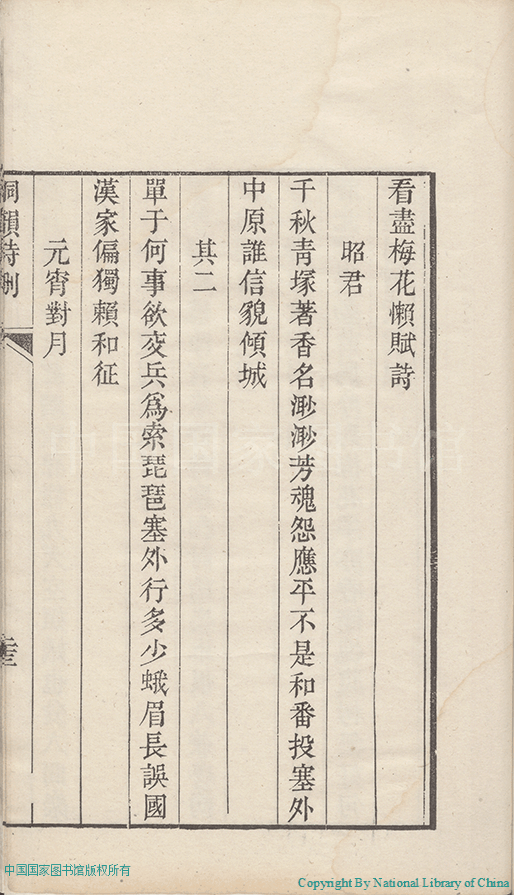 看盡梅花懶賦詩
昭君
千秋青塚著香名渺渺芳魂怨應平不是和番投塞外
中原誰信貌傾城
其二
單于何事欲交兵爲索琵琶塞外行多少蛾眉長誤國
漢家偏獨賴和征
元宵對月
韻詩刪
中国国家图书馆
中国国家图书馆版权所有
Copyright By National Library of China